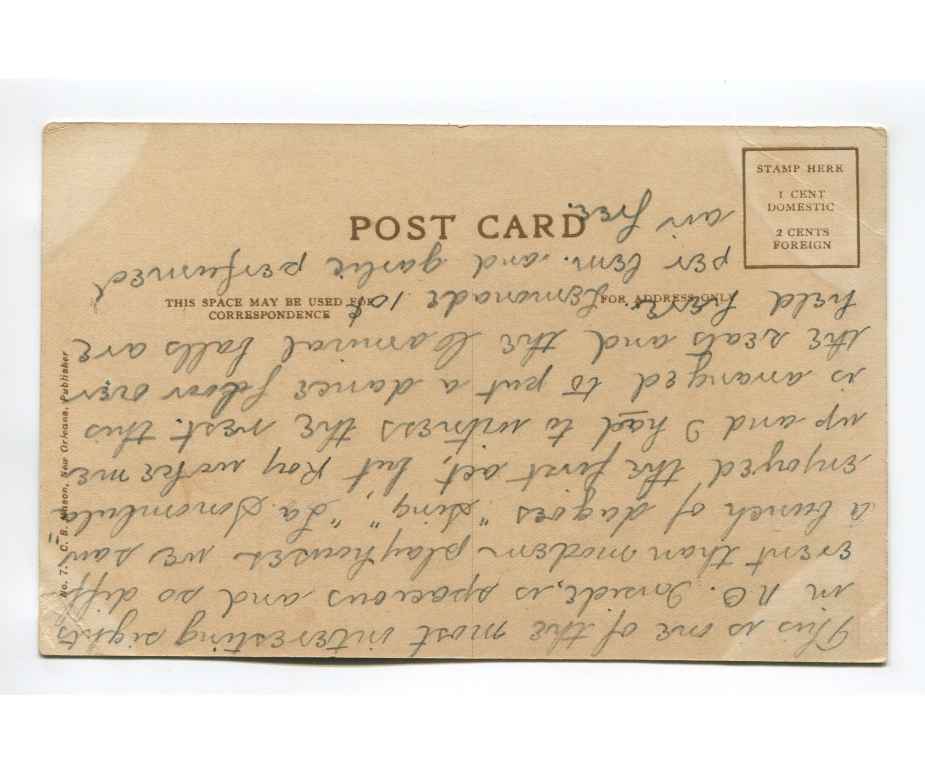 POST CARD
STAMP HERE
1 CENT
DOMESTIC
2 CENTS
FOREIGN
THIS SPACE MAY BE USED FOR
CORRESPONDENCE
FOR ADDRESS ONLY
No. 7. C. B. Mason, New Orleans, Publisher
This is one of the most interesting sights
in N.O. Inside, is spacious and so diff-
erent than modern playhouses we saw
a bunch of dagoes "sing" "La Sonombula
enjoyed the first act, but Roy woke me
up and I had to witness the rest. this
is arranged to put a dance floor over
the seats and the Carnival balls are
held here. Lemonade 10¢
per lem. and garlic perfumed
air free.